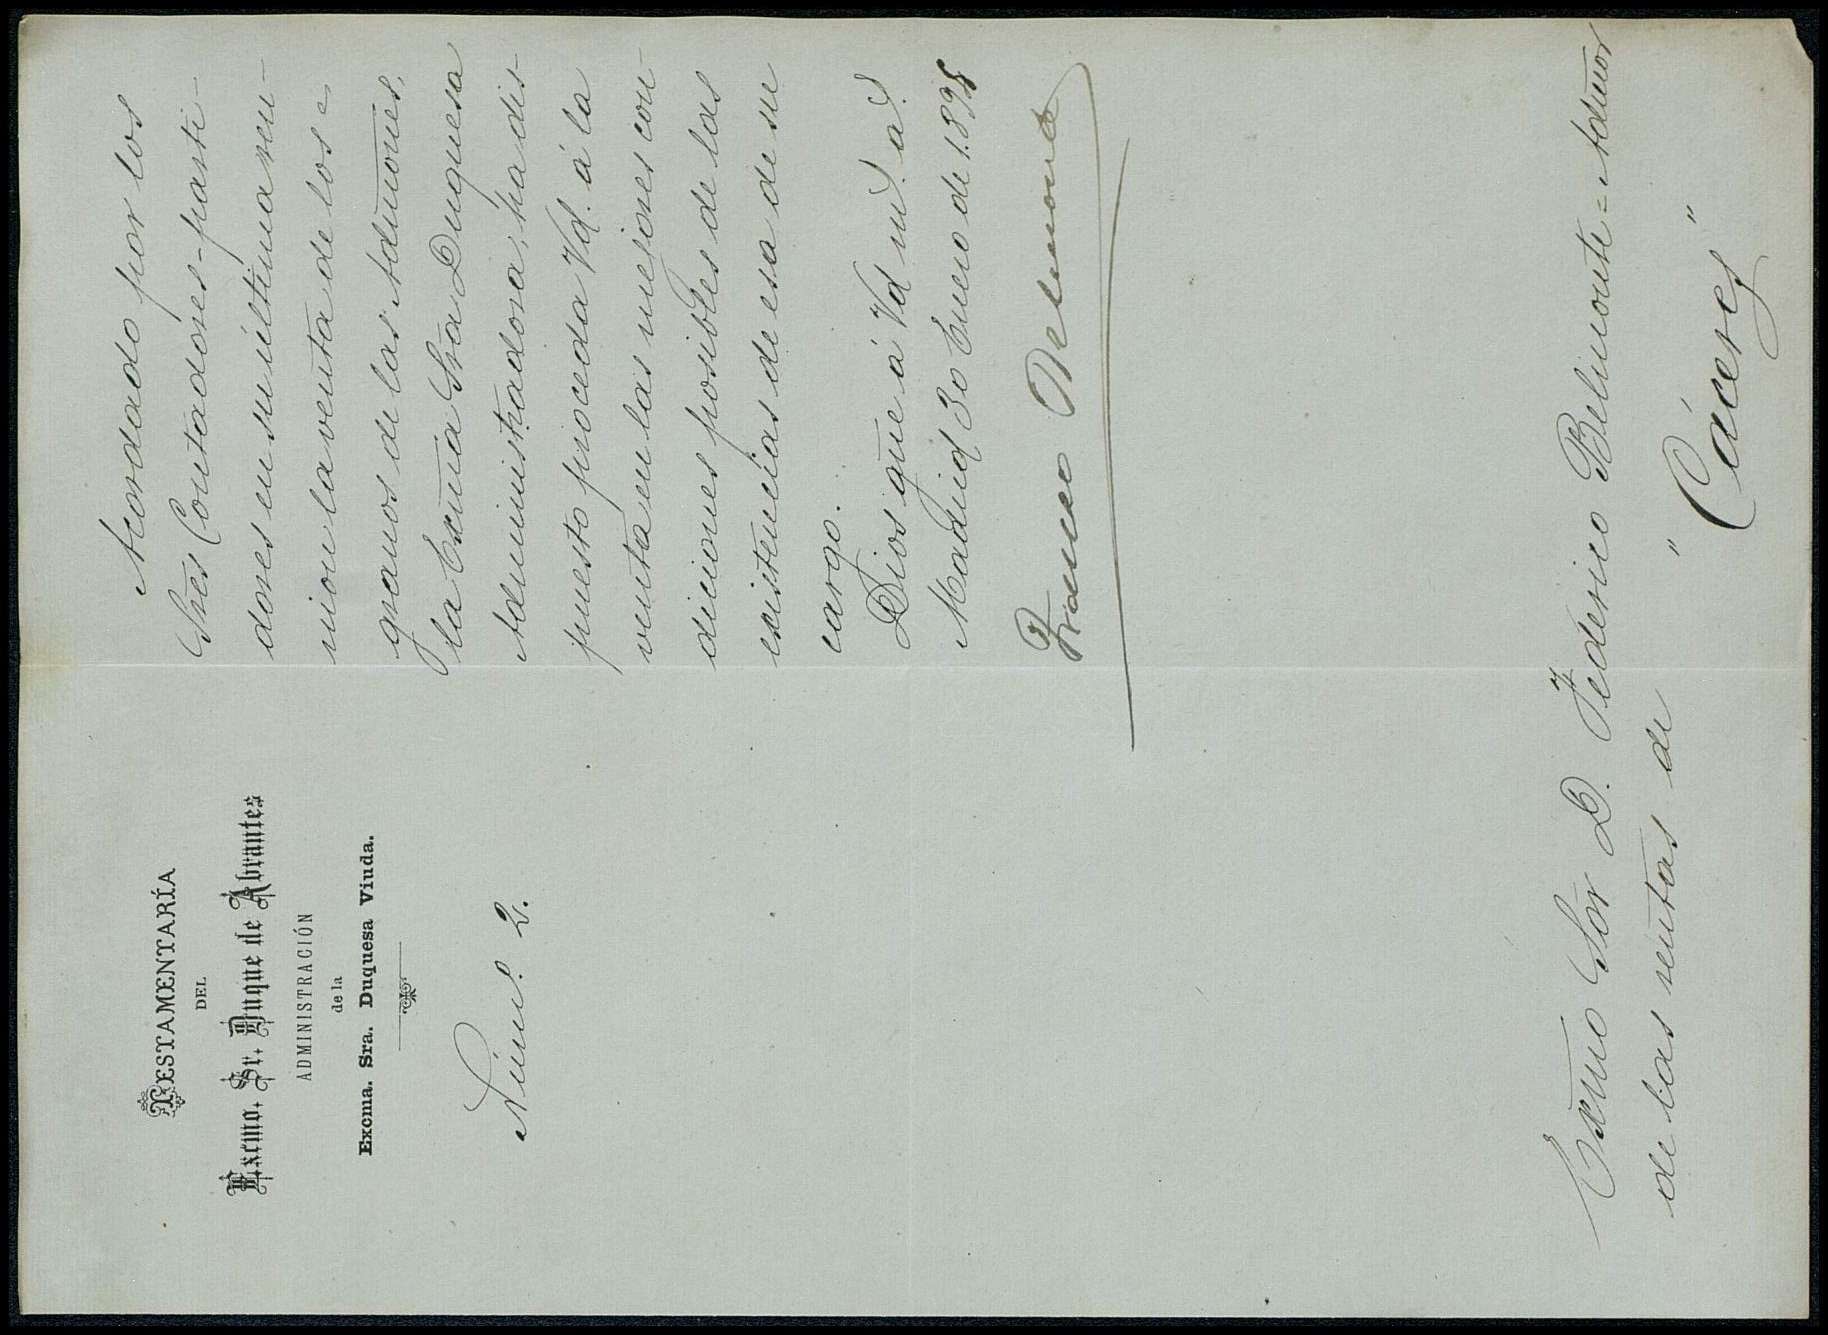 TESTAMENTARÍA
DEL
Excmo. Sr. Duque de Abrantes
ADMINISTRACIÓN
de la
Excma. Sra. Duquesa Viuda.
Núm. 2.
Acordado por los
Sres Contadores-parti-
dores en su última reu-
nion la venta de los =
granos de las Admones,
la Excma Sra Duquesa
Administradora, ha dis-
puesto proceda Vd. á la
venta en las mejores con-
diciones posibles de las
existencias de esa de su
cargo.
Dios gue á Vd ms. as.
Madrid 30 Enero de 1.898
Franco Belmonte
Excmo Sor D. Federico Belmonte = Admor
de las rentas de
" Cáceres "